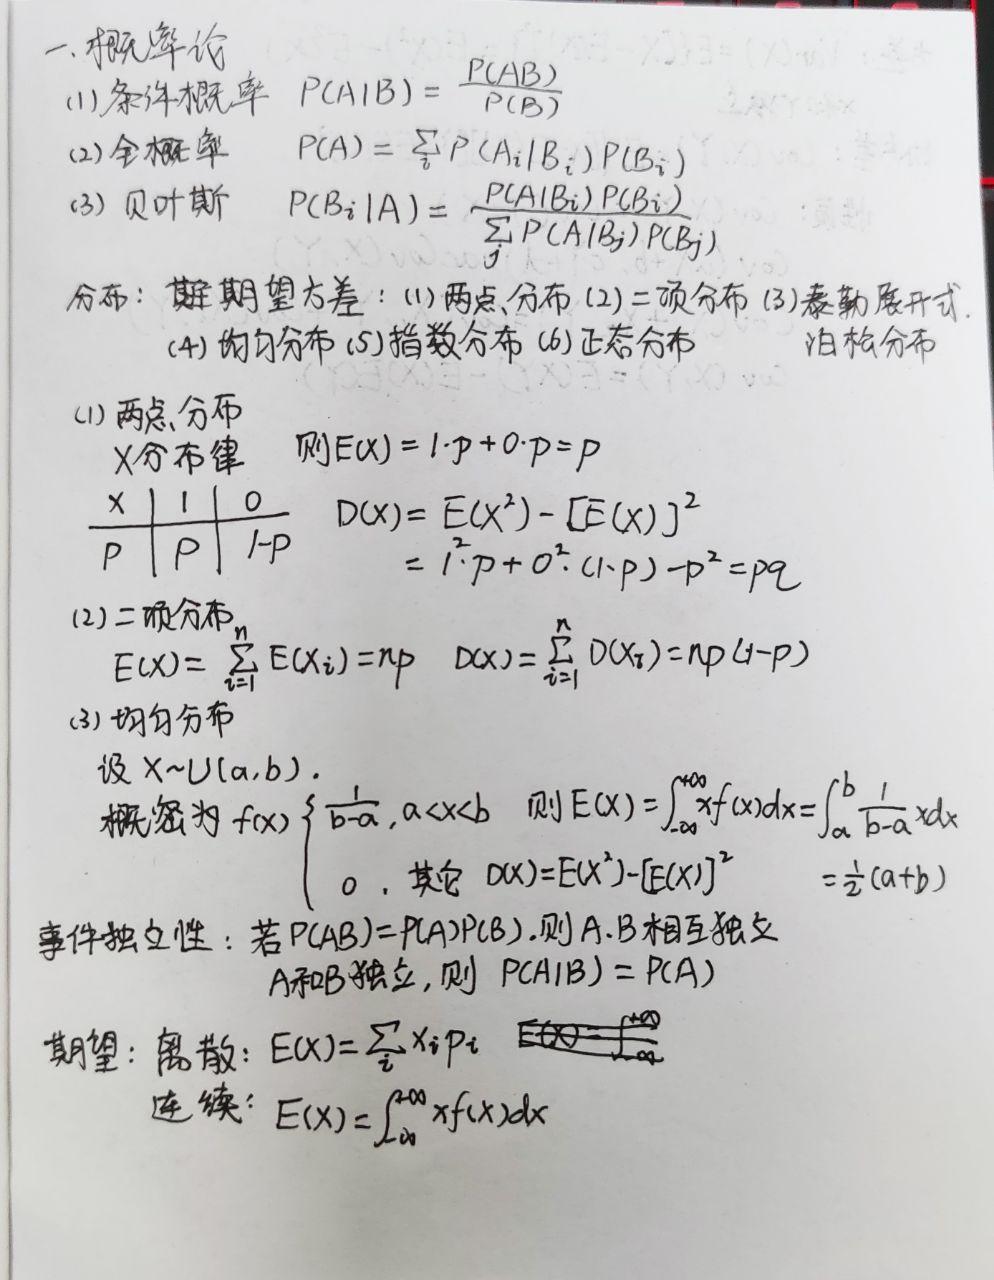 一.概率论
(1) 条件概率 P(A|B) = P(AB)/P(B)
(2) 全概率 P(A) = ∑_i P(A_i|B_i)P(B_i)
(3) 贝叶斯 P(B_i|A) = P(A|B_i)P(B_i)/∑_j P(A|B_j)P(B_j)
分布: 期望方差: (1) 两点分布 (2) 二项分布 (3) 泰勒展开式.
(4) 均匀分布 (5) 指数分布 (6) 正态分布 泊松分布
(1) 两点分布
X分布律 则E(X) = 1·p + 0·p = p
X | 1 | 0
P | p | 1-p
D(X) = E(X²) - [E(X)]²
= 1²·p + 0²·(1-p) - p² = pq
(2) 二项分布
E(X) = ∑_{i=1}^{n} E(X_i) = np D(X) = ∑_{i=1}^{n} D(X_i) = np(1-p)
(3) 均匀分布
设 X~U(a,b).
概密为 f(x) { 1/(b-a), a<x<b 则 E(X) = ∫_{-∞}^{+∞} xf(x)dx = ∫_a^b 1/(b-a) xdx
0, 其它 D(X) = E(X²) - [E(X)]² = ½(a+b)
事件独立性: 若P(AB)=P(A)P(B).则A.B相互独立
A和B独立,则 P(A|B) = P(A)
期望: 离散: E(X) = ∑_i x_i p_i
连续: E(X) = ∫_{-∞}^{+∞} xf(x)dx